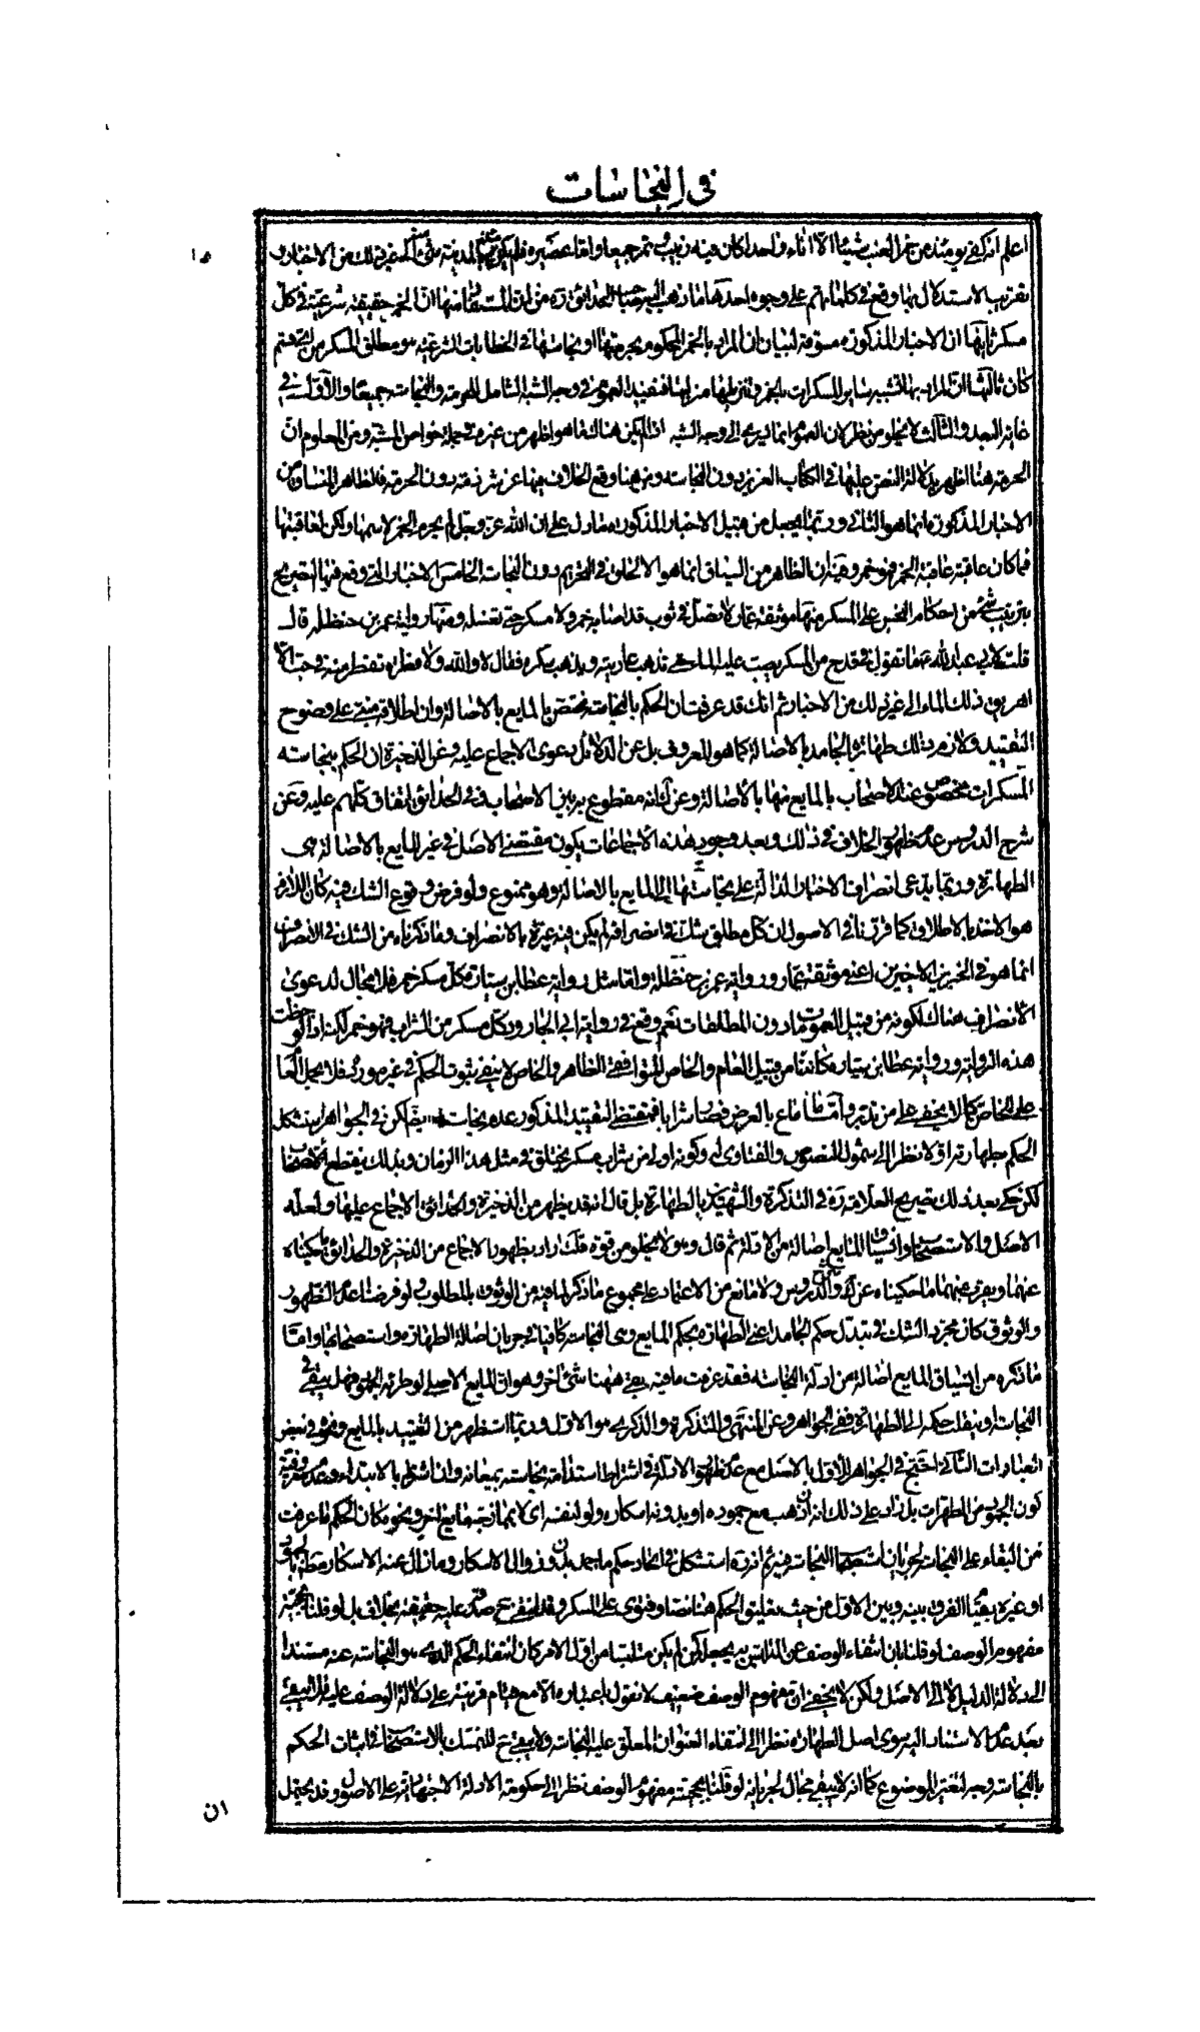 في النجاسات
١٥
اعلم انه اكفى يومئذ من خمر العنب شيئا الا اناء واحدا كان فيه زبيب وتمر جميعا واما عصيره فلم يكن منه يومئذ بالمدينة شئ الى غير ذلك من الاخبار و
تقريب الاستدلال بها وقع في كلماتهم على وجوه احدها ما ذهب اليه صاحب الحدائق ره من ان المستفاد منها ان الخمر حقيقة شرعية في كل
مسكر ثانيها ان الاخبار المذكورة مسوقة لبيان ان المراد بالخمر المحكوم بحرمتها او نجاستها في الخطابات الشرعية هو مطلق المسكر من اى قسم
كان ثالثها ان المراد بها تشبيه سائر المسكرات بالخمر وتنزيلها منزلتها فتفيد العموم في وجه الشبه الشامل للحرمة والنجاسة جميعا والاول في
غاية البعد والثالث لا يخلو من نظر لان العموم انما يرجع الى وجه الشبه اذا لم يكن هناك ما هو اظهر من غيره في جملة خواص المشبه به ومن المعلوم ان
الحرمة هنا اظهر بدلالة النص عليها في الكتاب العزيز دون النجاسة ومن هنا وقع الخلاف فيها عن شرذمة دون الحرمة فالظاهر المنساق من
الاخبار المذكورة انما هو الثاني وربما يجعل من قبيل الاخبار المذكورة ما دل على ان الله عز وجل لم يحرم الخمر لاسمها ولكن لعاقبتها
فما كان عاقبته عاقبة الخمر فهو خمر وفيه ان الظاهر من السياق انما هو الالحاق في التحريم دون النجاسة الخامس الاخبار التي وقع فيها التصريح
بترتيب شئ من احكام النجس على المسكر منها موثقة عمار لا تصل في ثوب قد اصابه خمر ولا مسكر حتى تغسله ومنها رواية عمر بن حنظلة قال
قلت لابي عبد الله ع ما تقول في قدح من المسكر يصب عليه الماء حتى تذهب عاديته ويذهب سكره فقال لا والله ولا قطرة تقطر منه في حب الا
اهريق ذلك الماء الى غير ذلك من الاخبار ثم انك قد عرفت ان الحكم بالنجاسة مختص بالمايع بالاصالة وان اطلاقه مبني على وضوح
التقييد ولازم ذلك طهارة الجامد بالاصالة كما هو المعروف بل عن الدلائل دعوى الاجماع عليه وعن الذخيرة ان الحكم بنجاسة
المسكرات مخصوص عند الاصحاب بالمايع منها بالاصالة وعن انه مقطوع به بين الاصحاب وفي الحدائق اتفاق كلهم عليه وعن
شرح الدروس عدم ظهور الخلاف في ذلك وبعد وجود هذه الاجماعات يكون مقتضى الاصل في غير المايع بالاصالة هي
الطهارة وربما يدعى انصراف الاخبار الدالة على نجاستها الى المايع بالاصالة وهو ممنوع ولو فرض وقوع الشك فيه كان اللازم
هو الاخذ بالاطلاق كما قررنا في الاصول ان كل مطلق شك في انصرافه لم يكن فيه عبرة بالانصراف وما ذكرناه من الشك في الانصراف
انما هو في الخبرين الاخيرين اعني موثقة عمار ورواية عمر بن حنظلة واما مثل رواية عطا بن يسار كل مسكر خمر فلا مجال لدعوى
الانصراف هناك لكونه من قبيل العمومات دون المطلقات نعم وقع في رواية ابي الجارود كل مسكر من الشراب فهو خمر لكنه اذا لوحظت
هذه الرواية ورواية عطا بن يسار كانتا من قبيل العام والخاص المتوافقي الظاهر والخاص لا ينفي ثبوت الحكم في غير مورده فلا يحمل العام
على الخاص كما لا يخفى على من تدبر واما ما ماع بالعرض فصار شرابا فمقتضى التقييد المذكور عدم نجاسته ايضا لكن في الجواهر استشكل
الحكم بطهارته قال نظرا الى شمول النصوص والفتاوى له وكونه اولى من شراب مسكر يختلق في مثل هذا الزمان وبذلك ينقطع الاستصحاب
لكن حكى بعد ذلك تصريح العلامة ره في التذكرة والشهيد بالطهارة بل قال انه قد يظهر من الذخيرة والحدائق الاجماع عليها ولعله
الاصل والاستصحاب وانسياق المايع اصالة من الادلة ثم قال وهو لا يخلو من قوة قلت اراد بظهور الاجماع من الذخيرة والحدائق ما حكيناه
عنهما ويقرب عنهما ما حكيناه عن وشرح الدروس ولا مانع من الاعتماد على مجموع ما ذكر لما فيه من الوثوق بالمطلوب ولو فرضنا عدم الظهور
والوثوق كان مجرد الشك في تبدل حكم الجامد اعني الطهارة بحكم المايع وهي النجاسة كافيا في جريان اصالة الطهارة واستصحابها واما
ما ذكره من انسياق المايع اصالة من ادلة النجاسة فقد عرفت ما فيه بقي ههنا شئ اخر وهو ان المايع الاصلي لو طرئه الجمود فهل يبقى في
النجاسة او ينقلب حكمه الى الطهارة ففي الجواهر وعن المنتهى والتذكرة والذكرى هو الاول وربما استظهر من التقييد بالمايع ونحوه في بعض
العبارات الثاني احتج في الجواهر للاول بالاصل مع عدم ظهور الادلة في اشتراط استدامة نجاسته بميعانه وان اشترط بالابتداء وعدم معروفية
كون الجمود من المطهرات بل زاد على ذلك انه ان ذهب مع جموده او بدونه اسكاره ولو لنفسه اى لا بممازجة مايع اخر ونحوه كان الحكم ما عرفت
من البقاء على النجاسة لجريان استصحاب النجاسة فيه ثم انه ره استشكل في اتحاد حكم ما جمد بدون زوال الاسكار وما زال عنه الاسكار مطلقا بالجمود
او غيره بقيام الفرق بينه وبين الاول من حيث تعليق الحكم هنا نصا وفتوى على المسكر وقد انتفى مع صدقه عليه حقيقة بخلافه بل لو قلنا بحجية
مفهوم الوصف او قلنا بان انتفاء الوصف عن الذات به يجعل كمن لم يكن متلبسا من اول الامر كان انتفاء الحكم الذي هو النجاسة عنه مستندا
الى دلالة الدليل لا الى الاصل ولكن لا يخفى ان مفهوم الوصف ضعيف لا نقول باعتباره الا مع قيام قرينة على دلالة الوصف عليه فلا يبقى
بعد عدم الاستناد اليه سوى اصل الطهارة نظرا الى انتفاء العنوان المعلق عليه النجاسة ولا يبقى مع للتمسك بالاستصحاب في اثبات الحكم
بالنجاسة وجه لتغير الموضوع كما انه لا يبقى مجال لجريانه لو قلنا بحجية مفهوم الوصف نظرا الى حكومة الادلة الاجتهادية على الاصول وقد يحتمل
ان